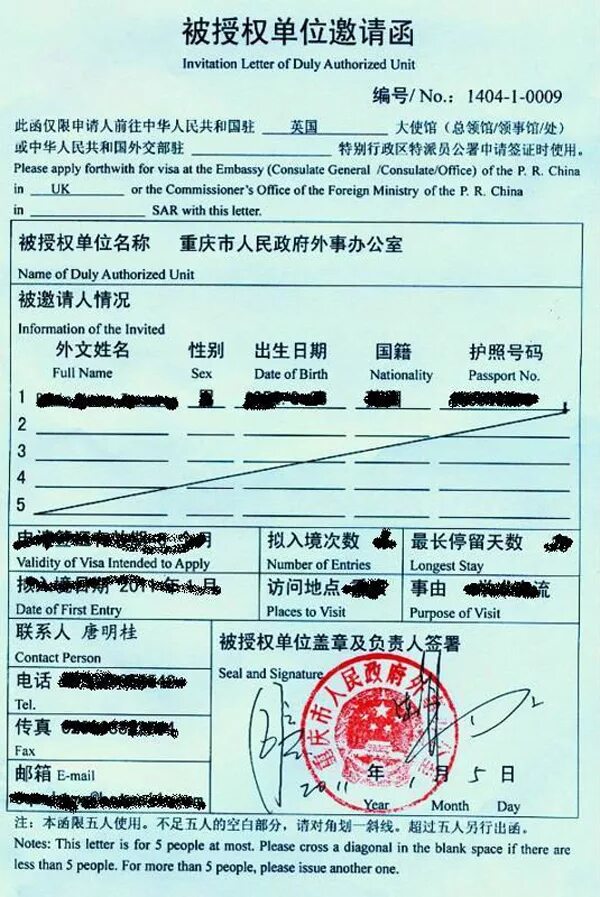 被授权单位邀请函
Invitation Letter of Duly Authorized Unit
编号/ No.：1404-1-0009
此函仅限申请人前往中华人民共和国驻 英国 大使馆（总领馆/领事馆/处）
或中华人民共和国外交部驻 特别行政区特派员公署申请签证时使用。
Please apply forthwith for visa at the Embassy (Consulate General /Consulate/Office) of the P. R. China
in UK or the Commissioner's Office of the Foreign Ministry of the P. R. China
in SAR with this letter.
被授权单位名称 重庆市人民政府外事办公室
Name of Duly Authorized Unit
被邀请人情况
Information of the Invited
外文姓名 性别 出生日期 国籍 护照号码
Full Name Sex Date of Birth Nationality Passport No.
1
2
3
4
5
拟入境次数 最长停留天数
Validity of Visa Intended to Apply Number of Entries Longest Stay
拟入境日期 2011年1月 访问地点 事由
Date of First Entry Places to Visit Purpose of Visit
联系人 唐明桂 被授权单位盖章及负责人签署
Contact Person Seal and Signature
电话
Tel.
传真
Fax
重庆市人民政府外
邮箱 E-mail
2011 年 1 月 5 日
Year Month Day
注：本函限五人使用。不足五人的空白部分，请对角划一斜线。超过五人另行出函。
Notes: This letter is for 5 people at most. Please cross a diagonal in the blank space if there are
less than 5 people. For more than 5 people, please issue another one.